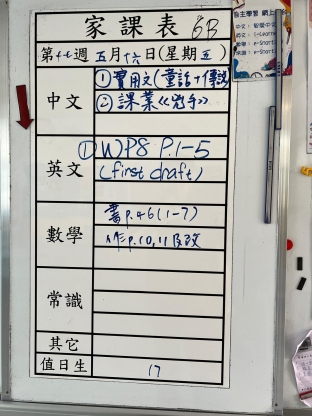 家課表 6B
第十七週 五月十六日(星期五)
中文
①實用文(童話+傳說
②課業《岩手》
英文
① WP8 P.1-5
(first draft)
數學
書p.46(1-7)
作p.10,11及改
常識
其它
值日生 17